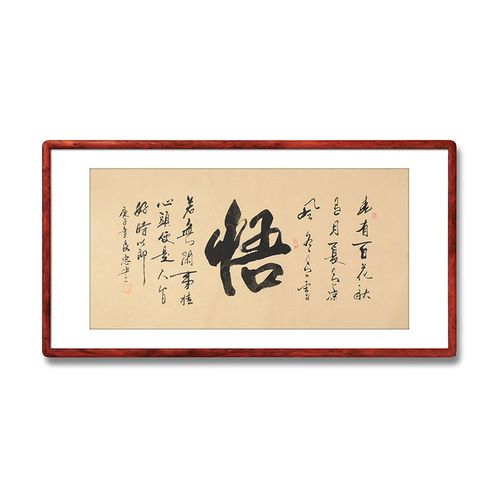 春有百花秋
有月夏有凉
风冬有雪
悟
若無閑事挂
心頭便是人间
好時節
庚子年